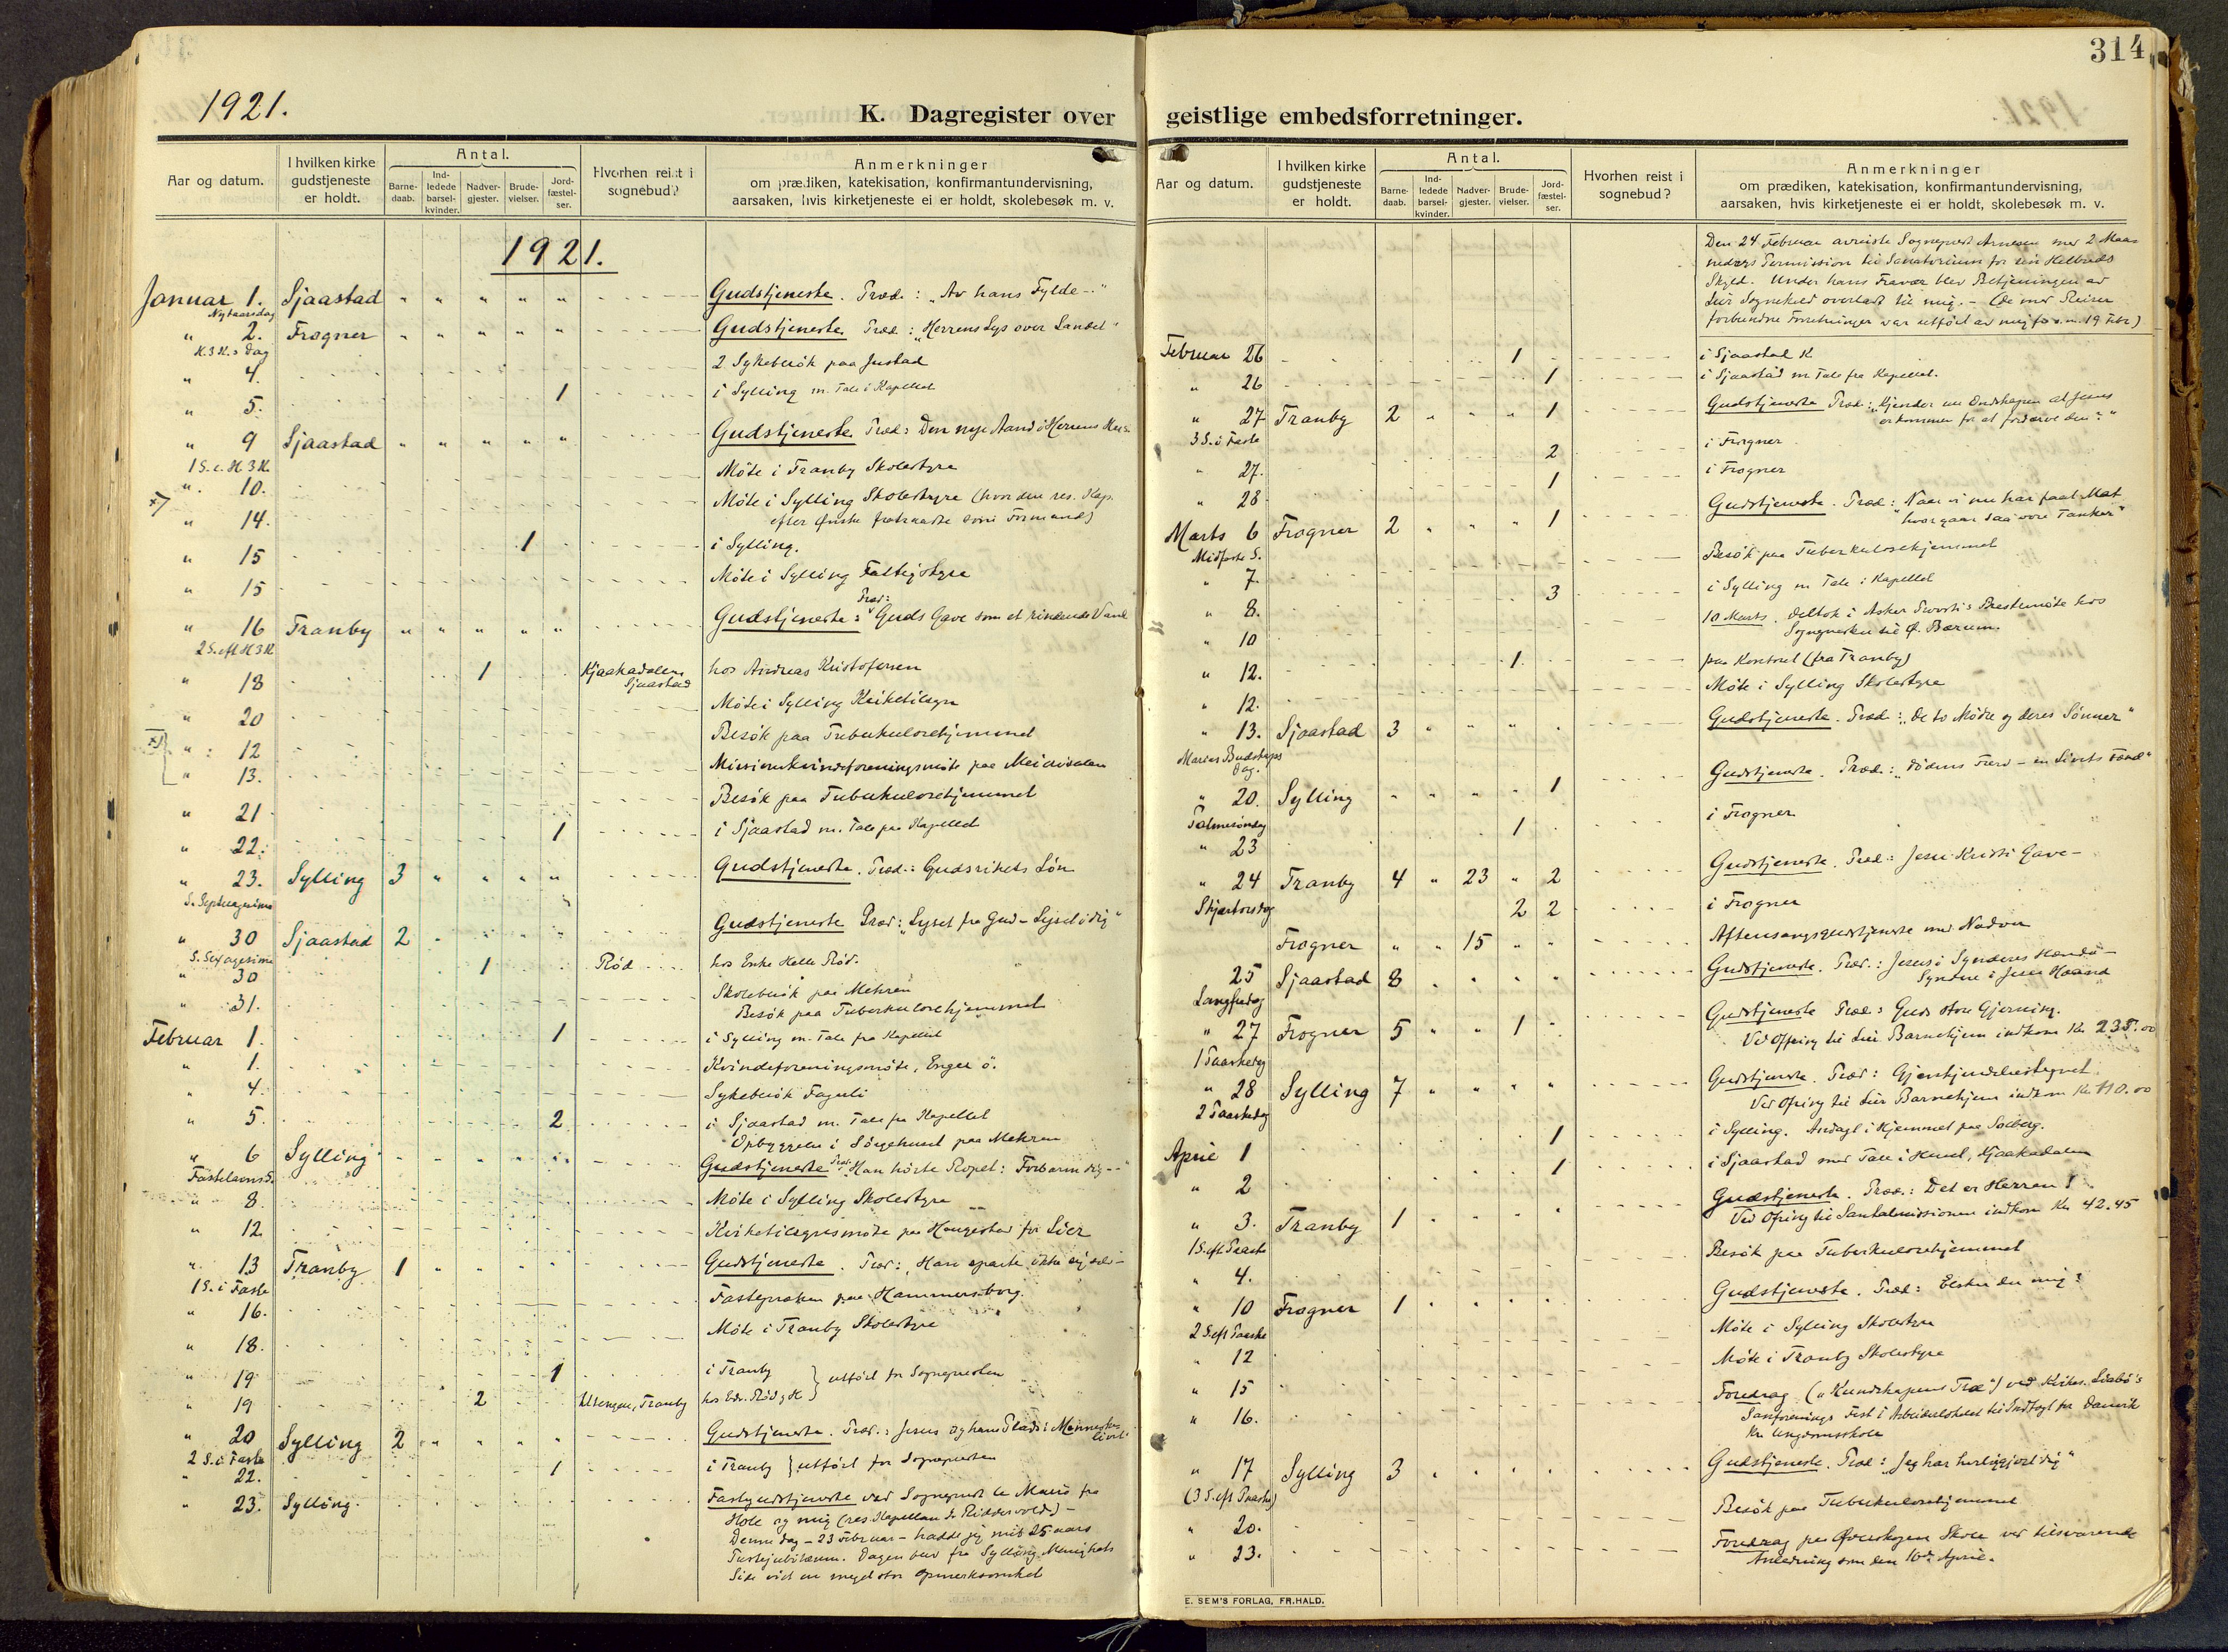 1921.
K. Dagregister over
Aar og datum.
I hvilken kirke gudstjeneste er holdt.
Antal.
Barne-daab.
Ind-ledede barsel-kvinder.
Nadver-gjester.
Brude-vielser.
Jord-fæstel-ser.
Hvorhen reist i sognebud?
Anmerkninger
om prædiken, katekisation, konfirmantundervisning,
aarsaken, hvis kirketjeneste ei er holdt, skolebesøk m. v.
1921.
Januar 1. Sjaastad " " " " " Gudstjeneste. Præd.: "Av hans Fylde -"
Nytaarsdag
" 2. Frogner " " " " " Gudstjeneste Præd.: "Herrens Lys over Landet"
H.3 K.s Dag
" 4. 2 Sykebesök paa Justad
" 5. 1 i Sylling m. Tale i Kapellet
" 9 Sjaastad " " " " " Gudstjeneste. Præd: Den nye Aand i Herrens
1 S. e. H 3 K.
" 10. Möte i Tranby Skolestyre
x) " 14. Möte i Sylling Skolestyre (hvor den res. Kap.
efter Ønske fratraadte som Formand)
" 15 1 i Sylling.
" 15 Möte i Sylling Fattigstyre
" 16 Tranby " " " " " Gudstjeneste: Præd: "Guds Gave som et rindende Vand
2 S. eft H 3 K
" 18 1 Kjaakadalen Sjaastad hos Andreas Kristofersen
" 20 Möte i Sylling Kirketilsyn
x) " 12 Besök paa Tuberkulosehjemmet
" 13. Missionskvindeforeningsmöte paa
" 21 Besök paa Tuberkulosehjemmet
" 22. 1 i Sjaastad m. Tale paa Kapellet
" 23. Sylling 3 " " " " Gudstjeneste. Præd.: Gudsrikets Løn
S. Septuagesima
" 30 Sjaastad 2 " " " " Gudstjeneste Præd: "Lyset fra Gud - Lyset i dig"
S. Sexagesima
" 30 1 Röd hos Enke Helle Röd.
" 31. Skolebesök paa Mehren
Besök paa Tuberkulosehjemmet
Februar 1. 1 i Sylling m. Tale fra Kapellet
" 1. Kvindeforeningsmöte, Enger ö.
" 4. Sykebesök Fagerli
" 5. 2 i Sjaastad m. Tale fra Kapellet
Opbyggelse i Sörgehuset paa Mehren
" 6 Sylling " " " " " Gudstjeneste Præd: "Han hörte Ropet: Forbarm dig --"
Fastelavns S.
" 8. Möte i Sylling Skolestyre
" 12 Kirketilsynsmöte paa Haugestad for Lier
" 13 Tranby 1 " " " " Gudstjeneste. Præd: "Han sparte ikke sig selv -
1 S. i Faste
" 16. Fastepræken paa Hammersborg.
" 18. Möte i Tranby Skolestyre
" 19 1 i Tranby } utfört for Sognepresten
" 19 2 Utengen, Tranby hos Edv. Röd & H
" 20 Sylling 2 " " " " Gudstjeneste. Præd.: Jesus og hans Plads i Menneskelivet
2 S. i Faste
" 22. 1 i Tranby } utfört for Sognepresten
" 23. Sylling. Fastegudstjeneste ved Sogneprest le Maire fra
Hole og mig (res. Kapellan Ridder­vold) -
Denne Dag - 23 Februar - hadde jeg mit 25 aars
Prestejubilæum. Dagen blev fra Sylling Menighets
Side vist en meget stor Opmerksomhet
314
geistlige embedsforretninger.
Aar og datum.
I hvilken kirke gudstjeneste er holdt.
Antal.
Barne-daab.
Ind-ledede barsel-kvinder.
Nadver-gjester.
Brude-vielser.
Jord-fæstel-ser.
Hvorhen reist i sognebud?
Anmerkninger
om prædiken, katekisation, konfirmantundervisning,
aarsaken, hvis kirketjeneste ei er holdt, skolebesøk m. v.
Den 24 Februar avreiste Sogneprest Arnesen med 2 Maa-
neders Permission til Sanatorium for sin Helbreds
Skyld. Under hans Fravær blev Betjeningen av
Lier Sognekald overlatt til mig. - (De med Reiser
forbundne Forretninger var utfört av mig fra 19 Febr.)
Februar 26 1 i Sjaastad K
" 26 1 i Sjaastad m. Tale fra Kapellet.
" 27 Tranby 2 " " " 1 Gudstjeneste Præd: "Kjender nu Ondskapen at Jesus
er kommen for at fordærve den?"
3 S. i Faste
" 27. 2 i Frogner
" 28 1 i Frogner
Marts 6 Frogner 2 " " " 1 Gudstjeneste. Præd: "Naar vi nu har faat Mat
hvor gaar saa vore Tanker"
Midfaste S.
" 7. Besök paa Tuberkulosehjemmet
" 8. 3 i Sylling m Tale i Kapellet
" 10 10 Marts. Deltok i Asker Provsti's Prestemöte hos
Sognepresten til Ø. Bærum.
" 12. 1 paa Kontoret (fra Tranby)
" 12. Möte i Sylling Skolestyre
" 13. Sjaastad 3 " " " Gudstjeneste. Præd: "De to Mödre og deres Sönner"
Marias Budskaps Dag.
" 20. Sylling " " " " 1 Gudstjeneste. Præd.: "Dödens Færd - en Livets Færd"
Palmesöndag
" 23 1 i Frogner
" 24 Tranby 4 " 23 " 2 Gudstjeneste. Præd: Jesu Kristi Gave -
Skjærtorsdag
2 2 i Frogner
Frogner " " 15 " " Aftensangsgudstjeneste med Nadver
25 Sjaastad 8 " " " " Gudstjeneste. Præd.: Jesus i Synderes Hænder -
Syndere i Jesu Haand
Langfredag
" 27 Frogner 5 " " 1 " Gudstjeneste Præd: Guds store Gjerning.
Ved Offring til Lier Barnehjem indkom Kr 235.00
1 Paaskedag
" 28 Sylling 7 " " " " Gudstjeneste. Præd: Gjenkjendelsestegnet.
Ved Ofring til Lier Barnehjem indkom Kr 110.00
2 Paaskedag
April 1 1 i Sylling. Andagt i Hjemmet paa Solberg.
" 2 1 i Sjaastad med Tale i Huset, Kjaakadalen
" 3. Tranby 1 " " " " Gudstjeneste. Præd.: Det er Herren!
Ved Ofring til Santalmissionen indkom Kr 42.45
1 S. eft. Paaske
" 4. Besök paa Tuberkulosehjemmet
" 10 Frogner 1 " " " " Gudstjeneste. Præd: Elsker du mig?
2 S. eft Paaske
" 12 Möte i Sylling Skolestyre
" 15 Möte i Tranby Skolestyre
" 16. Foredrag ("Kundskapens Træ") ved
Sanforenings Fest i Arbeiderlokalet til Indtægt for Danvik
Kr. Ungdomsskole
" 17 Sylling 3 " " " " Gudstjeneste. Præd: "Jeg har herliggjort dig"
(3 S. eft Paaske)
" 20. Besök paa Tuberkulosehjemmet
" 23. Foredrag paa Øverskogen Skole ved tilsvarende
Anledning som den 16de April.
E. SEM'S FORLAG, FR.HALD.